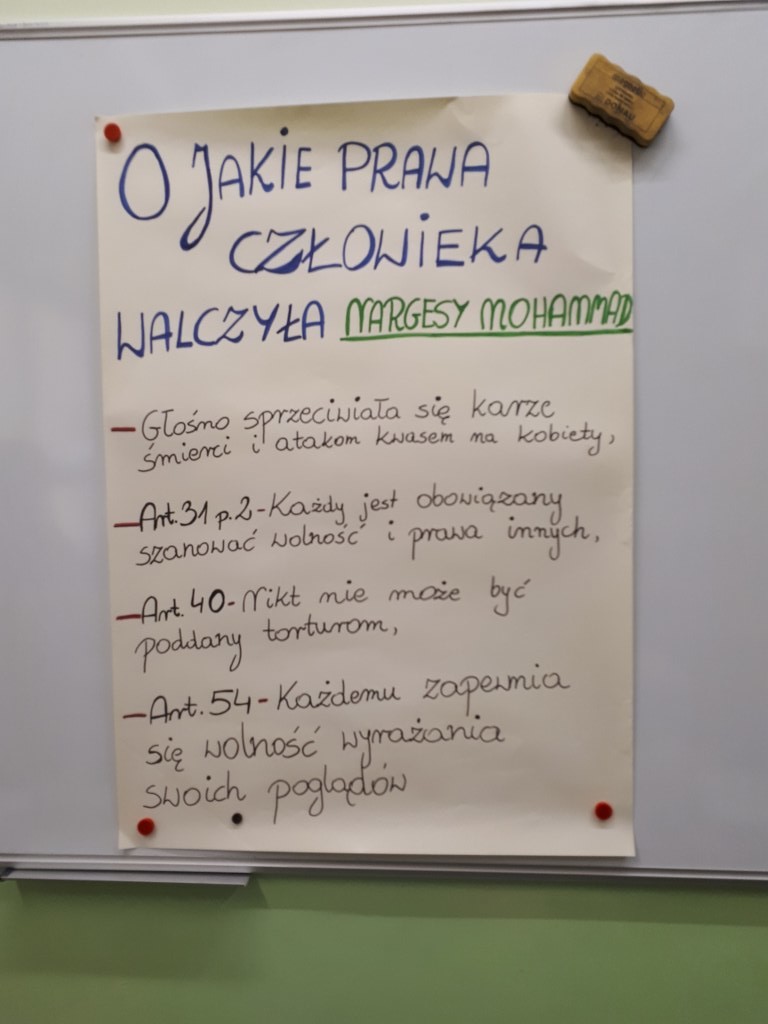 O JAKIE PRAWA
CZŁOWIEKA
WALCZYŁA NARGESY MOHAMMAD
- Głośno sprzeciwiała się karze
śmierci i atakom kwasem na kobiety,
- Art. 31 p. 2 - Każdy jest obowiązany
szanować wolność i prawa innych,
- Art. 40 - Nikt nie może być
poddany torturom,
- Art. 54 - Każdemu zapewnia
się wolność wyrażania
swoich poglądów